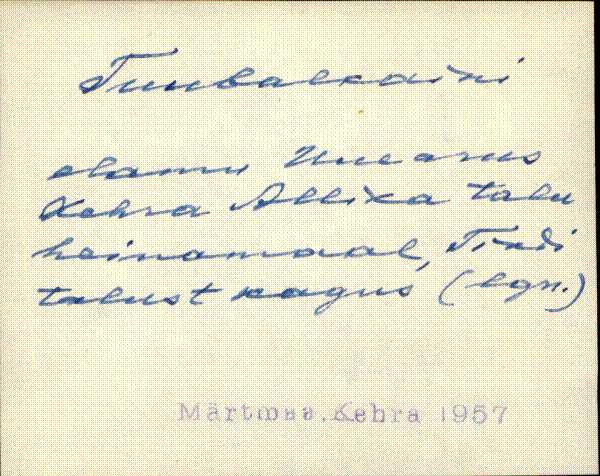 elamu Uuearus
Kehra Allika talu
heinamaal, Tiidi
talust kagus (lgn.)
Märtmaa.Kehra 1957